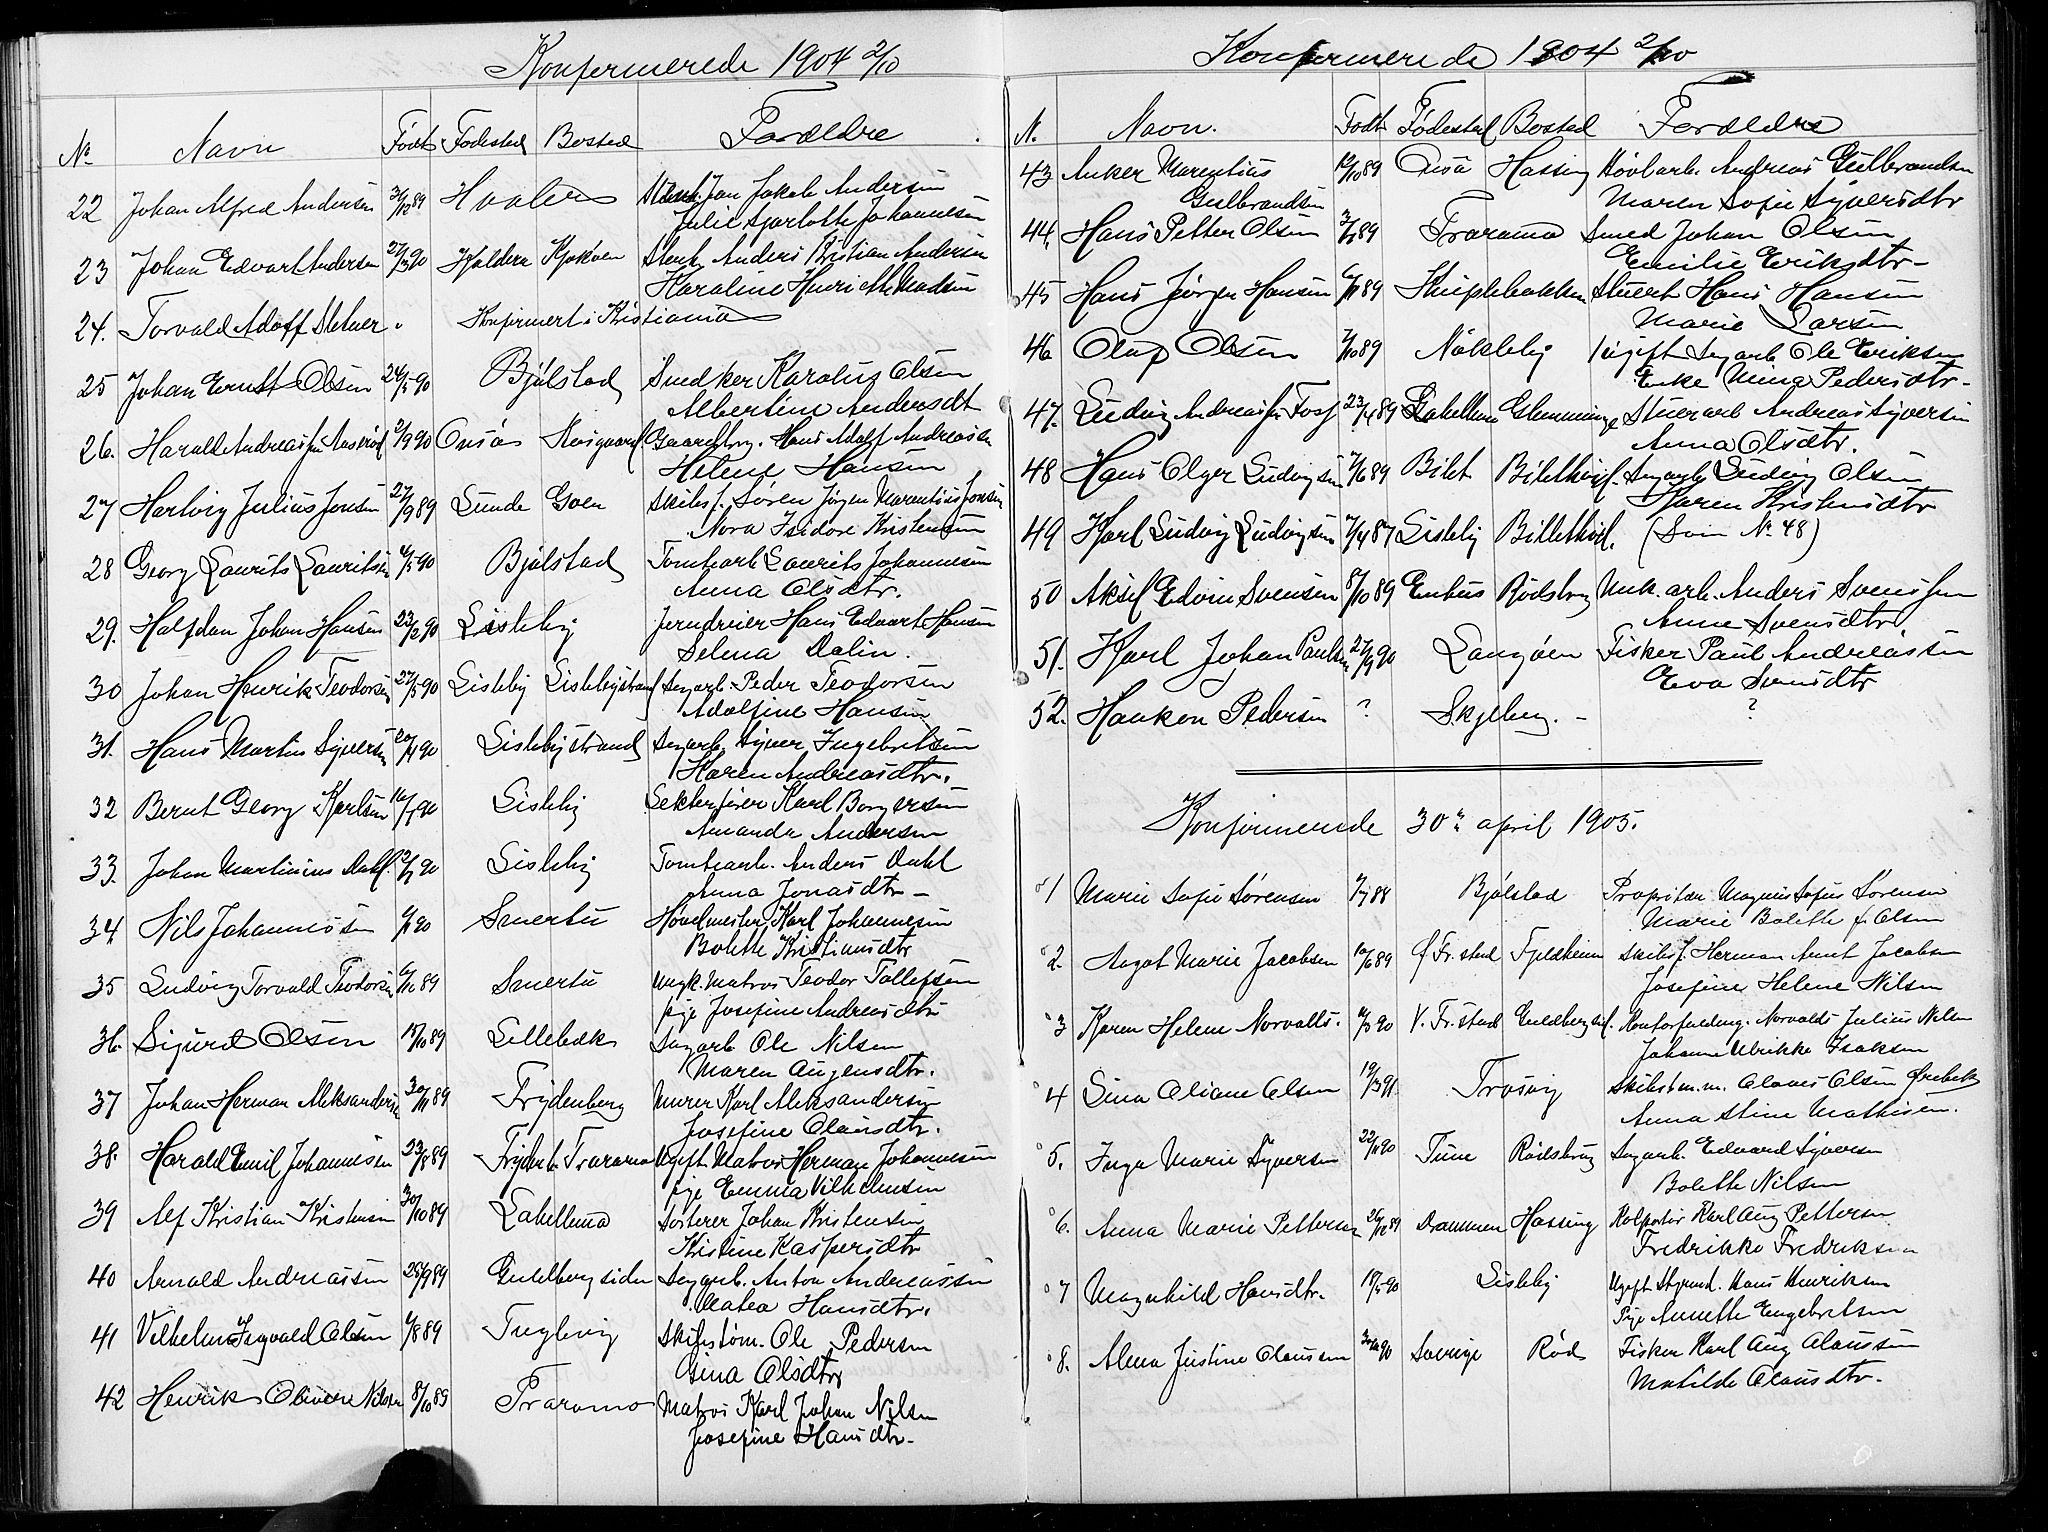 Konfirmerede 1904 2/10
No Navn Født Fødested Bosted Forældre
22 Johan Alfred Andersen 31/12 89 Hvaler Jan Jakob Andersen
Julie Sjarlotte Johannesen
23 Johan Edvart Andersen 27/3 90 Kjøkøen Stenh. Anders Kristian Andersen
Karoline Henriette Madsen
24. Torvald Adolf Konfirmert i Kristiania
25 Johan Ernst Olsen 24/5 90 Bjølstad Snedker Karolus Olsen
Albertine Andersdt
26. Harald Andreas 2/9 90 Onsø Gaardbrg. Hans Adolf Andreasen
Helene Hansen
27 Hartvig Julius Jonsen 27/9 89 Lunde Goen Skibsf. Søren Jørgen Marentius Jonsen
Nora Isidore Kristensen
28 Georg Laurits Lauritsen 4/5 90 Bjølstad Tomtearb Laurits Johannesen
Anna Olsdtr.
29. Halfdan Johan Hansen 23/2 90 Lisleby Jerndreier Hans Edvart Hansen
Selma Dalin.
30 Johan Henrik Teodorsen 27/5 90 Lisleby Lislebystrand Sagarb. Peder Teodorsen
Adolfine Hansen
31. Hans Martin Syversen 20/4 90 Lislebystrand Sagarb. Syver Ingebretsen
Karen Andreasdtr.
32 Bernt Georg Karlsen 16/7 90 Lisleby Karl Borgersen
Amanda Andersen
33. Johan Martinius Dahl. 90 Lisleby Tomtearb. Anders Dahl
Anna Jonasdtr
34 Nils Johannessen 90 Smertu Høvelmester Karl Johannesen
Bolette Kristiansdtr
35 Ludvig Torvald Teodorsen 89 Smertu Ungk. Matros Teodor Tollefsen
pige Josefine Andreasdtr
36. Sigurd Olsen 15/10 89 Lillebæk Sagarb Ole Nilsen
Maren Augensdtr.
37 Johan Herman Aleksandersen 30/11 89 Frydenberg Murer Karl Aleksandersen
Josefine Olausdtr.
38. Harald Emil Johannesen 23/8 89 Frydenb. Traramo Ugift Matros Herman Johannesen
pige Emma Vilhelmsen
39 Alf Kristian Kristensen 30/10 89 Lahellemo Sorterer Johan Kristensen
Kristine Kaspersdtr
40 Arnold Andreassen 25/9 89 Guldbergsiden Sagarb. Anton Andreassen
Matea Hansdtr.
41 Vilhelm Ingvald Olsen 4/8 89 Fuglevig Skibstøm. Ole Pedersen
Gina Olsdtr
42 Henrik Olivere Nilsen 8/10 89 Traramo Matros Karl Johan Nilsen
Josefine Hansdtr.
Konfirmerede 1904 2/10
N. Navn. Født Fødested Bosted Forældre
43 Anker Marentius 12/10 89 Onsø Hassing Høvlarb. Andreas Gulbrandsen
Gulbrandsen Maren Sofie Syversdtr
44, Hans Petter Olsen 89 Traramo Smed Johan Olsen
Emilie Eriksdtr
45 Hans Jørgen Hansen 89 Kniplebakken Stuert Hans Hansen
Marie Larsen
46 Oluf Olsen 7/10 89 Nøkleby Ugift Sagarb Ole Eriksen
Enke Mina Pedersdtr
47. Ludvig Andreas 23/4 89 Lahellemo Glemminge Stuerarb Andreas Syversen
Anna Olsdtr.
48 Hans Olger Ludvigsen 7/6 89 Bilet Bilethsvd. Sagarb Ludvig Olsen
Karen Kristensdtr
49 Karl Ludvig Ludvigsen 7/4 87 Lisleby (Som No 48)
50 Aksel Edvin Svensen 8/10 89 Enhus Rødsbrug Unk. arb. Anders Svensen
Anne Svensdtr
51. Karl Johan Paulsen 27/9 90 Langøen Fisker Paul Andreassen
Eva Svensdtr
52. Haakon Pedersen ? Skjeberg. - ?
Konfirmerede 30te april 1905.
1 Marie Sofie Sørensen 88 Bjølstad Propritær Magnus Sofus Sørensen
Marie Bolette f. Olsen
2. Aagot Marie Jacobsen 10/6 89 Ø Fr.stad Fjeldheim Skibsf. Herman Arnt Jacobsen
Josefine Helene Nilsen
3 Karen Helene Norvalls. 90 V. Fr.stad Kontorfuldmg. Norvalds Julius Nilsen
Johanne Ulrikke Isaksen
4 Sina Oliane Olsen 19/3 91 Trosvig Skibstm.m. Olaves Olsen Ørebek
Anna Stine Mathisen.
5. Inga Marie Syversen 22/11 90 Tune Rødsbrug Sagarb. Edvard Syversen
Bolette Nilsen
6. Anna Marie Pettersen 26/12 89 Drammen Hassing Kolportør Karl Aug Pettersen
Fredrikke Fredriksen
7 Magnhild Hansdtr. 18/5 90 Lisleby Ugift Styrmd. Hans Henriksen
Pige Annette Engebretsen
8. Alma Justine Olaussen 90 Sverige Rød Fisker Karl Aug Olaussen
Matilde Olausdtr.